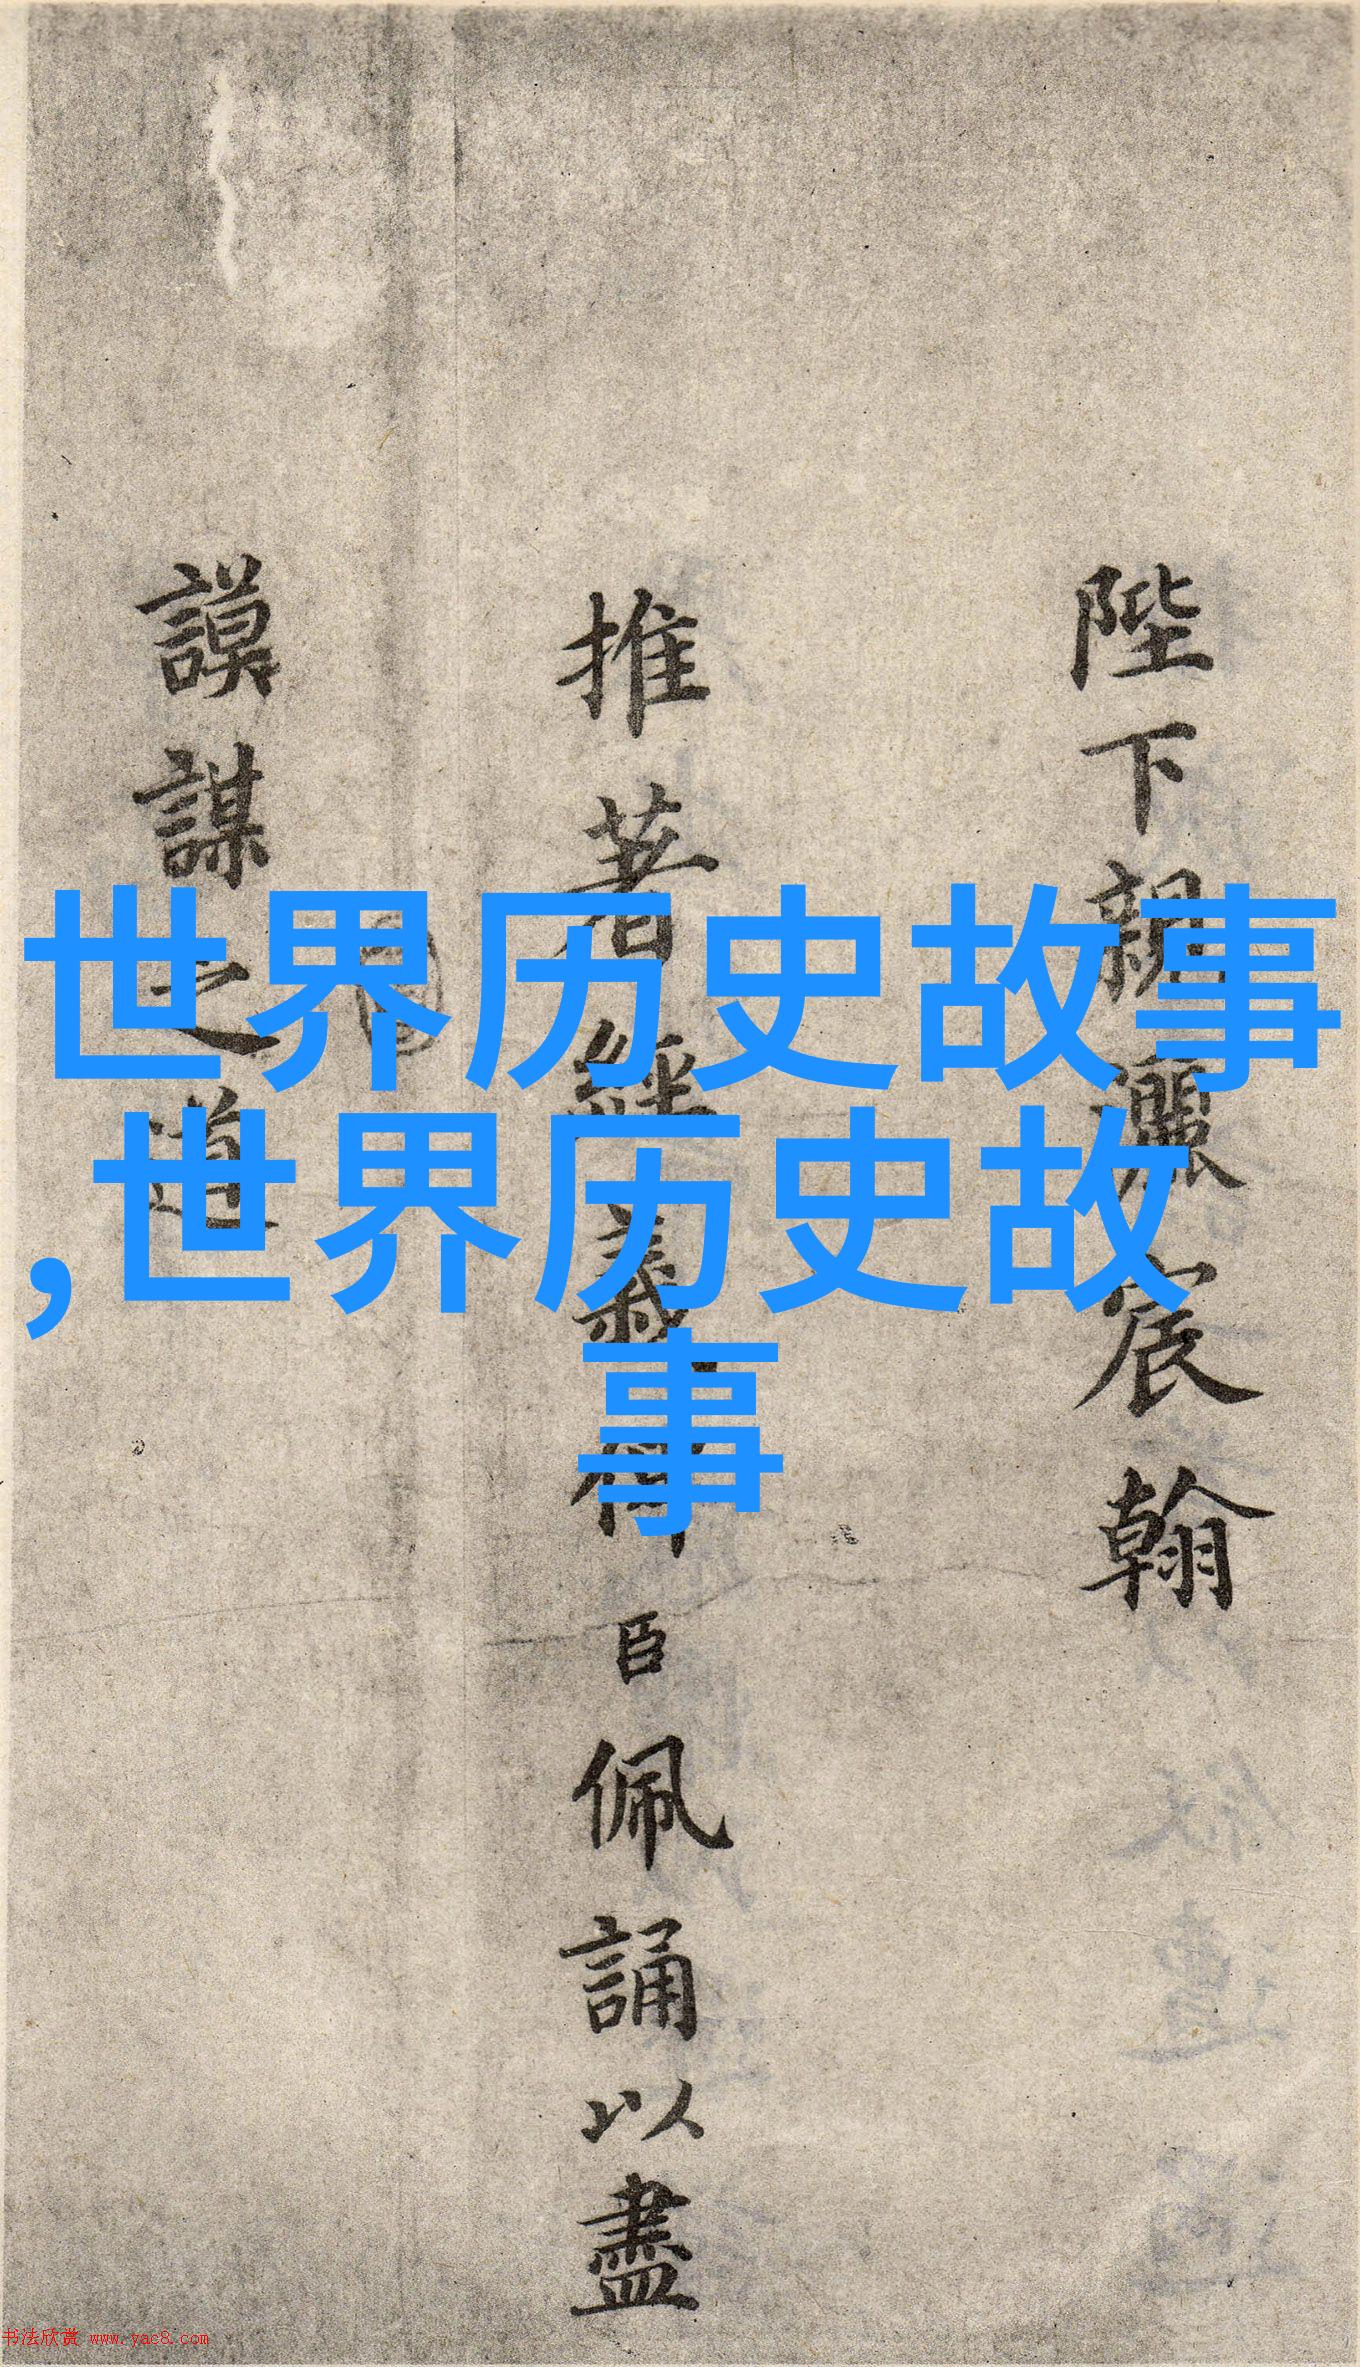 世界历史故事
,世界历史故
事
陛下親灑宸翰
推著經義俾臣佩誦以盡
謨謀之道
书法欣赏 www.yac8.com